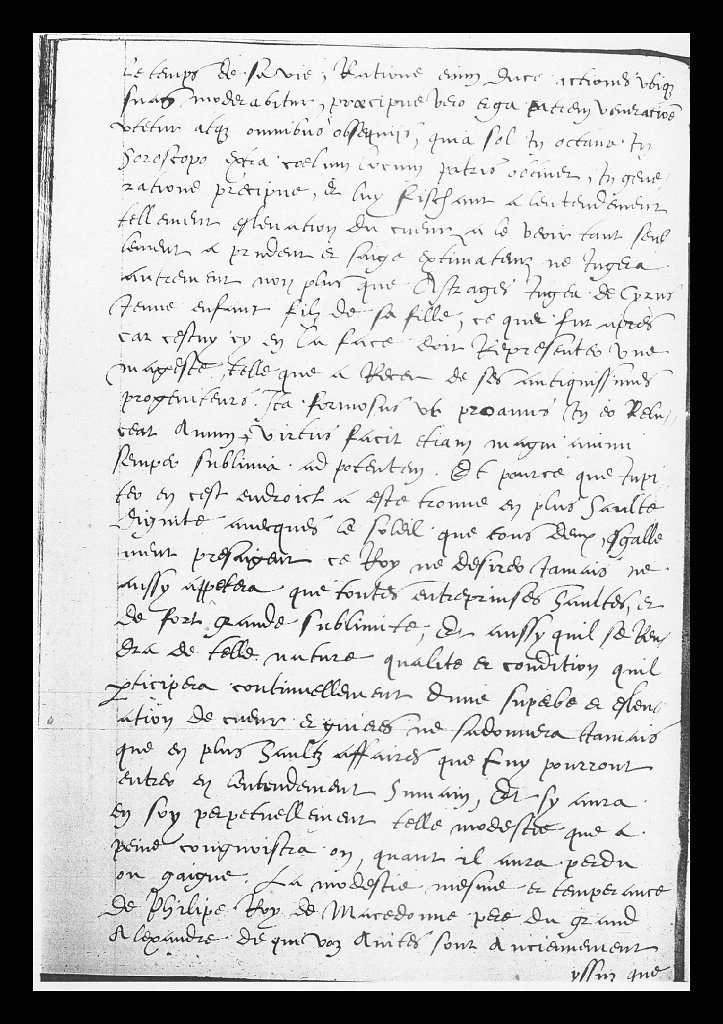 le temps de sa vie, Ratione enim duce actiones ubiq
suas moderabitur, præcipue vero Erga patrem veneratione
utetur atq omnibus obsequiis, quia sol in octava in
horoscopo Extra cœlum locum patris obtinet, in gene
ratione precipue, Et luy fischant a lentendement
tellement eslevation du cueur a le veoir tant seul
lement a prudent et saiga extimateur ne Jugera
autrement non plus que Astrages Jugea de Cyrus
Jeune enfant filz de sa fille, ce que fut apres
car cestuy cy en la face doit Representer une
mageste, telle que a Receu de ses antiquissimes
progeniteurs. Ita formosus ut proavus In eo Relu-
ceat Animi, virtus facit etiam magni animi
semper sublimia ad potentem. Et pource que Jupi
ter en cest endroict a este trouve en plus haulte
dignite avecques le soleil que tous deux, esgalle
ment presaigent ce Roy ne desirer Jamais ne
aussy appetera que toutes entreprinses haultes, et
de fort grande sublimite, Et aussy quil se Ren
dra de telle nature qualite et condition quil
participera continuellement dune superbe et eslev
ation de cueur et guieres ne sadonnera Jamais
que en plus haultz affaires que Luy pourront
entrer en lentendement humain, Et sy aura
en soy perpetuellement telle modestie que a
peine congnoistra on, quant il aura perdu
ou gaigne. La modestie mesme et temperance
de Philipe Roy de Macedonne pere du grand
Alexandre de qui voz Avites sont Anciennement
yssuz que